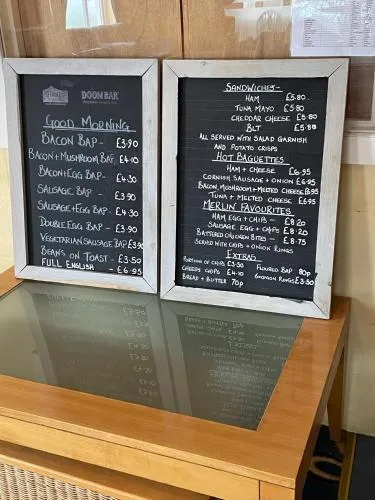 DOOM BAR
Good Morning
Bacon Bap - £3.90
Bacon+Mushroom Bap £4.10
Bacon+Egg Bap - £4.30
Sausage Bap - £3.90
Sausage+Egg Bap - £4.30
Double Egg Bap - £3.90
Vegetarian Sausage Bap £3.90
Beans on Toast - £3.50
Full English - £6.95
Sandwiches -
Ham £5.80
Tuna Mayo £5.80
Cheddar Cheese £5.80
BLT £5.80
All served with salad garnish
and potato crisps
Hot Baguettes
Ham + Cheese £6.95
Cornish Sausage + Onion £6.95
Bacon, Mushroom + Melted Cheese £6.95
Tuna + Melted Cheese £6.95
Merlin Favourites
Ham Egg + Chips - £8.20
Sausage Egg + Chips £8.20
Battered Chicken Bites - £8.75
Served with Chips + Onion Rings
Extras
Portion of Chips £3.50 Floured Bap 80p
Cheesy Chips £4.10 6 Onion Rings £3.50
Bread + Butter 70p